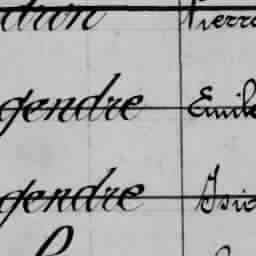 dron Pierre
gendre Emile
gendre Isid